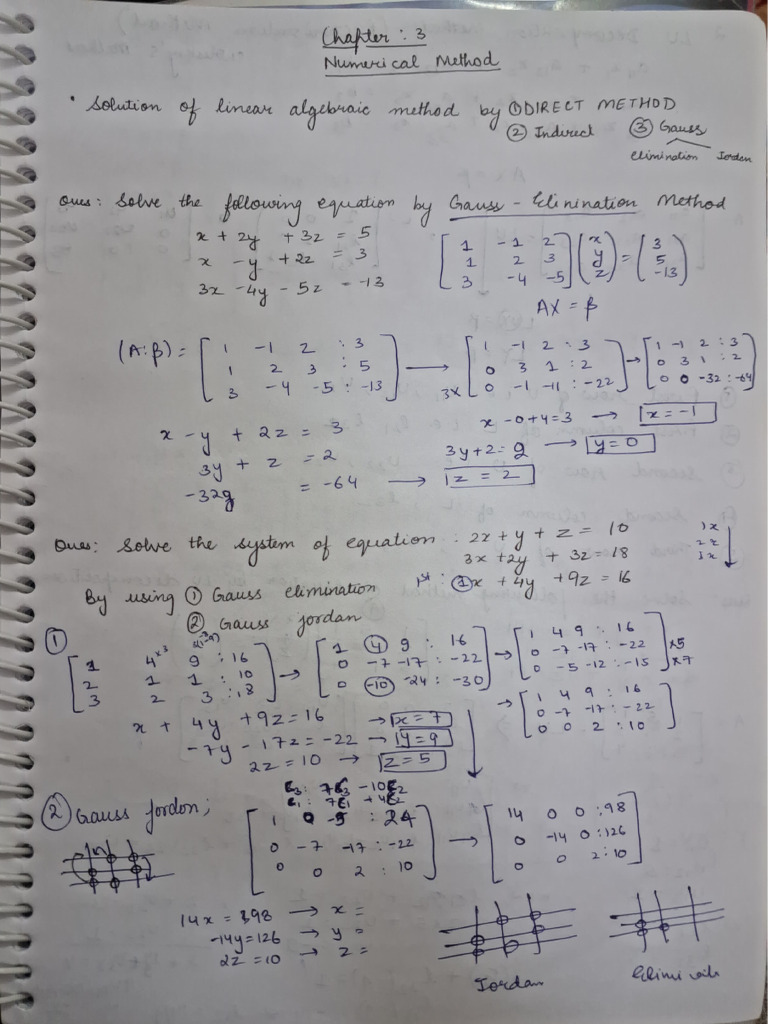 Chapter : 3
Numerical Method
• Solution of linear algebraic method by ① DIRECT METHOD
② Indirect ③ Gauss
elimination Jorden
Ques: Solve the following equation by Gauss - Elinination Method
x + 2y + 3z = 5
x - y + 2z = 3
3x - 4y - 5z = -13
[1 -1 2
1 2 3
3 -4 -5] (x
y
z) = (3
5
-13)
AX = β
(A:β) = [1 -1 2 : 3
1 2 3 : 5
3 -4 -5 : -13] → 3x [1 -1 2 : 3
0 3 1 : 2
0 -1 -11 : -22] → [1 -1 2 : 3
0 3 1 : 2
0 0 -32 : -64]
x - y + 2z = 3
3y + z = 2
-32g = -64 → z = 2
x - 0 + 4 = 3 → x = -1
3y + 2 = 2 → y = 0
Ques: Solve the system of equation : 2x + y + z = 10
3x + 2y + 3z = 18
1st : ①x + 4y + 9z = 16
By using ① Gauss elimination
② Gauss jordan
① [1 4 9 : 16
2 1 1 : 10
3 2 3 : 18] → [1 ④ 9 : 16
0 -7 -17 : -22
0 -10 -24 : -30] → [1 4 9 : 16
0 -7 -17 : -22
0 -5 -12 : -15] x5
x7
→ [1 4 9 : 16
0 -7 -17 : -22
0 0 2 : 10]
x + 4y + 9z = 16 → x = 7
-7y - 17z = -22 → y = 9
2z = 10 → z = 5
② Gauss Jordon;
[1 0 -5 : 24
0 -7 -17 : -22
0 0 2 : 10] → [14 0 0 : 98
0 -14 0 : 126
0 0 2 : 10]
14x = 398 → x =
-14y = 126 → y =
2z = 10 → z =
Jordan